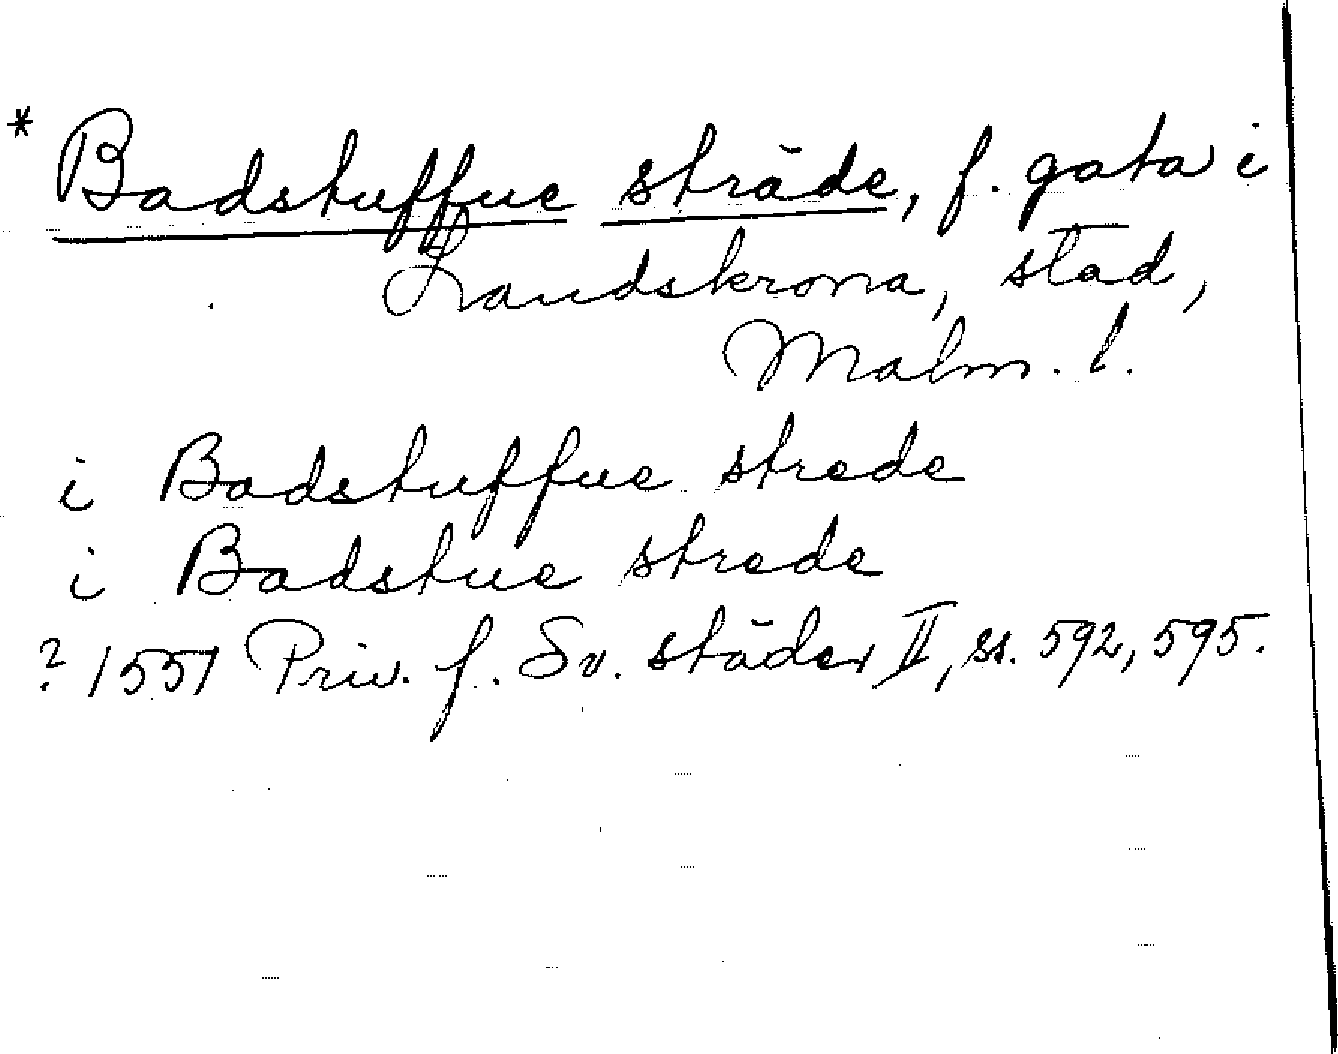 * Badstuffue sträde, f. gata i
Landskrona, stad,
Malm. l.
i Badstuffue strede
i Badstue strede
? 1551 Priv. f. Sv. städer II, ss. 592, 595.